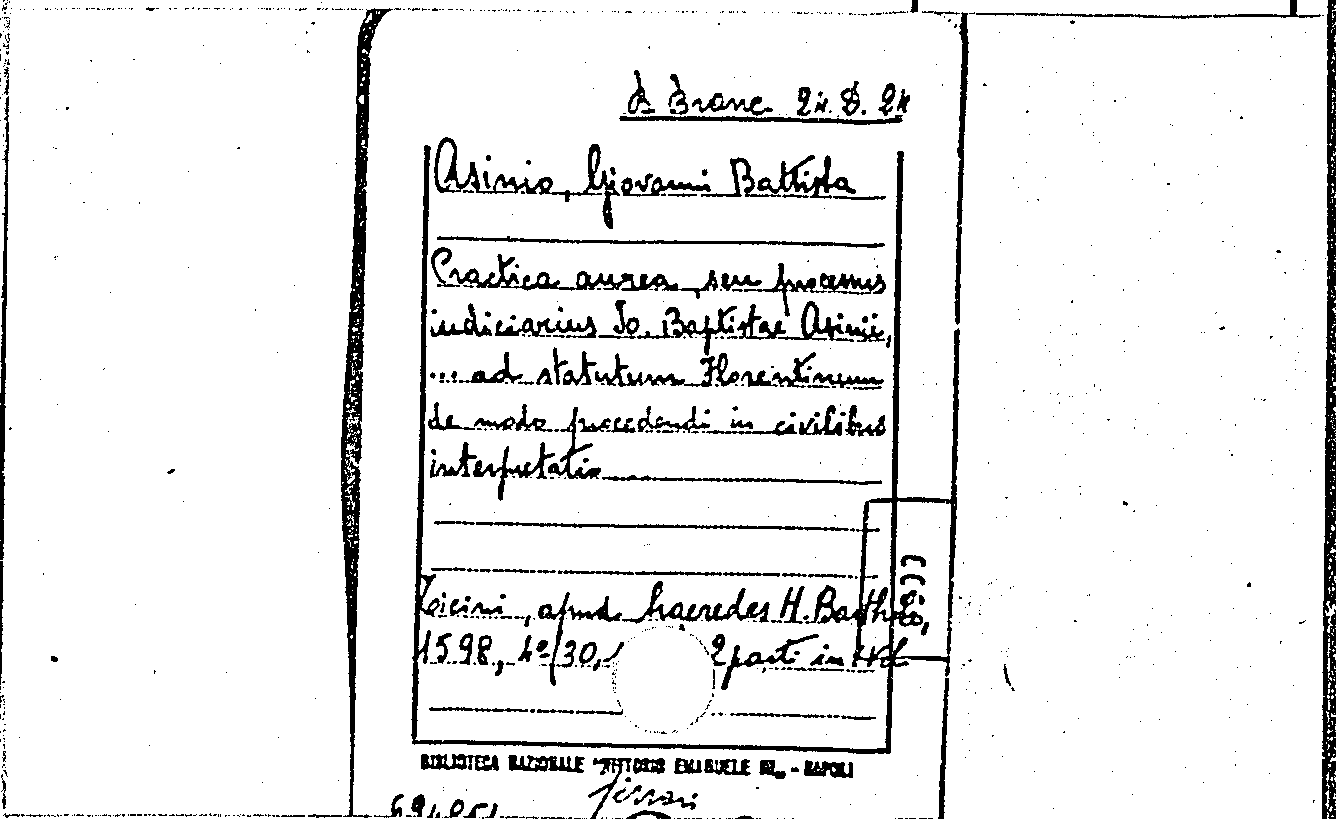 B Branc. 24. D. 24
Asinio, Giovanni Battista
Practica aurea, seu processus
iudiciarius Io. Baptistae Asinii,
... ad statutum Florentinum
de modo procedendi in civilibus
interpretatio
Ticini, apud haeredes H. Bartholi,
1598, 4° 30, 2 parti in 1 vol
BIBLIOTECA NAZIONALE "VITTORIO EMANUELE III" - NAPOLI